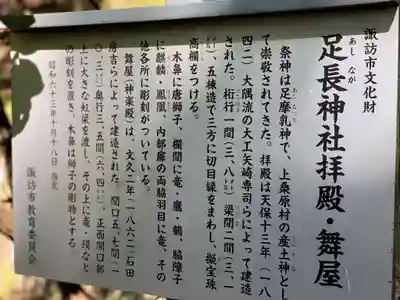 諏訪市文化財
あしなが
足長神社拝殿・舞屋
祭神は足摩乳神で、上桑原村の産土神とし
て崇敬されてきた。拝殿は天保十三年(一八
四二)大隅流の大工矢崎専司らによって建造
された。桁行一間(三、八㍍)梁間二間(三、一
㍍)、五棟造で三方に切目縁をまわし、擬宝珠
高欄をつける。
木鼻に唐獅子、欄間に竜、鷹・鶴、脇障子
に麒麟・鳳凰、内部扉の両脇羽目に竜、その
他各所に彫刻がついている。
舞屋(神楽殿)は、文久二年(一八六二)石田
房吉らによって建造された。間口五、七間(一
〇、三㍍)奥行三、五間(六、四㍍)正面開口部
上に大きな虹梁を渡し、その上に竜、須など
の彫刻を置き、木鼻は獅子の彫物とする。
昭和六十三年十月十八日 指定
諏訪市教育委員会